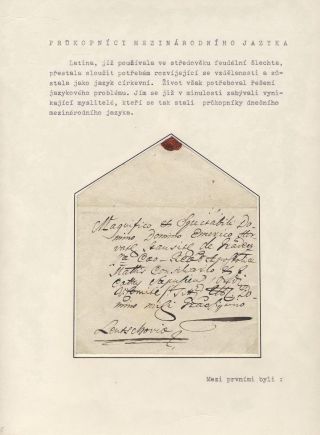 PRŮKOPNÍCI MEZINÁRODNÍHO JAZYKA
Latina, jíž používala ve středověku feudální šlechta,
přestala sloužit potřebám rozvíjející se vzdělanosti a zů-
stala jako jazyk církevní. Život však potřeboval řešení
jazykového problému. Jím se již v minulosti zabývali vyni-
kající myslitelé, kteří se tak stali průkopníky dnešního
mezinárodního jazyka.
Magnifico et Spectabili Do-
mino Domino Emerico Hor-
váth Stansith de
Consiliario
Domino mihi
Leutschovia
Mezi prvními byli :